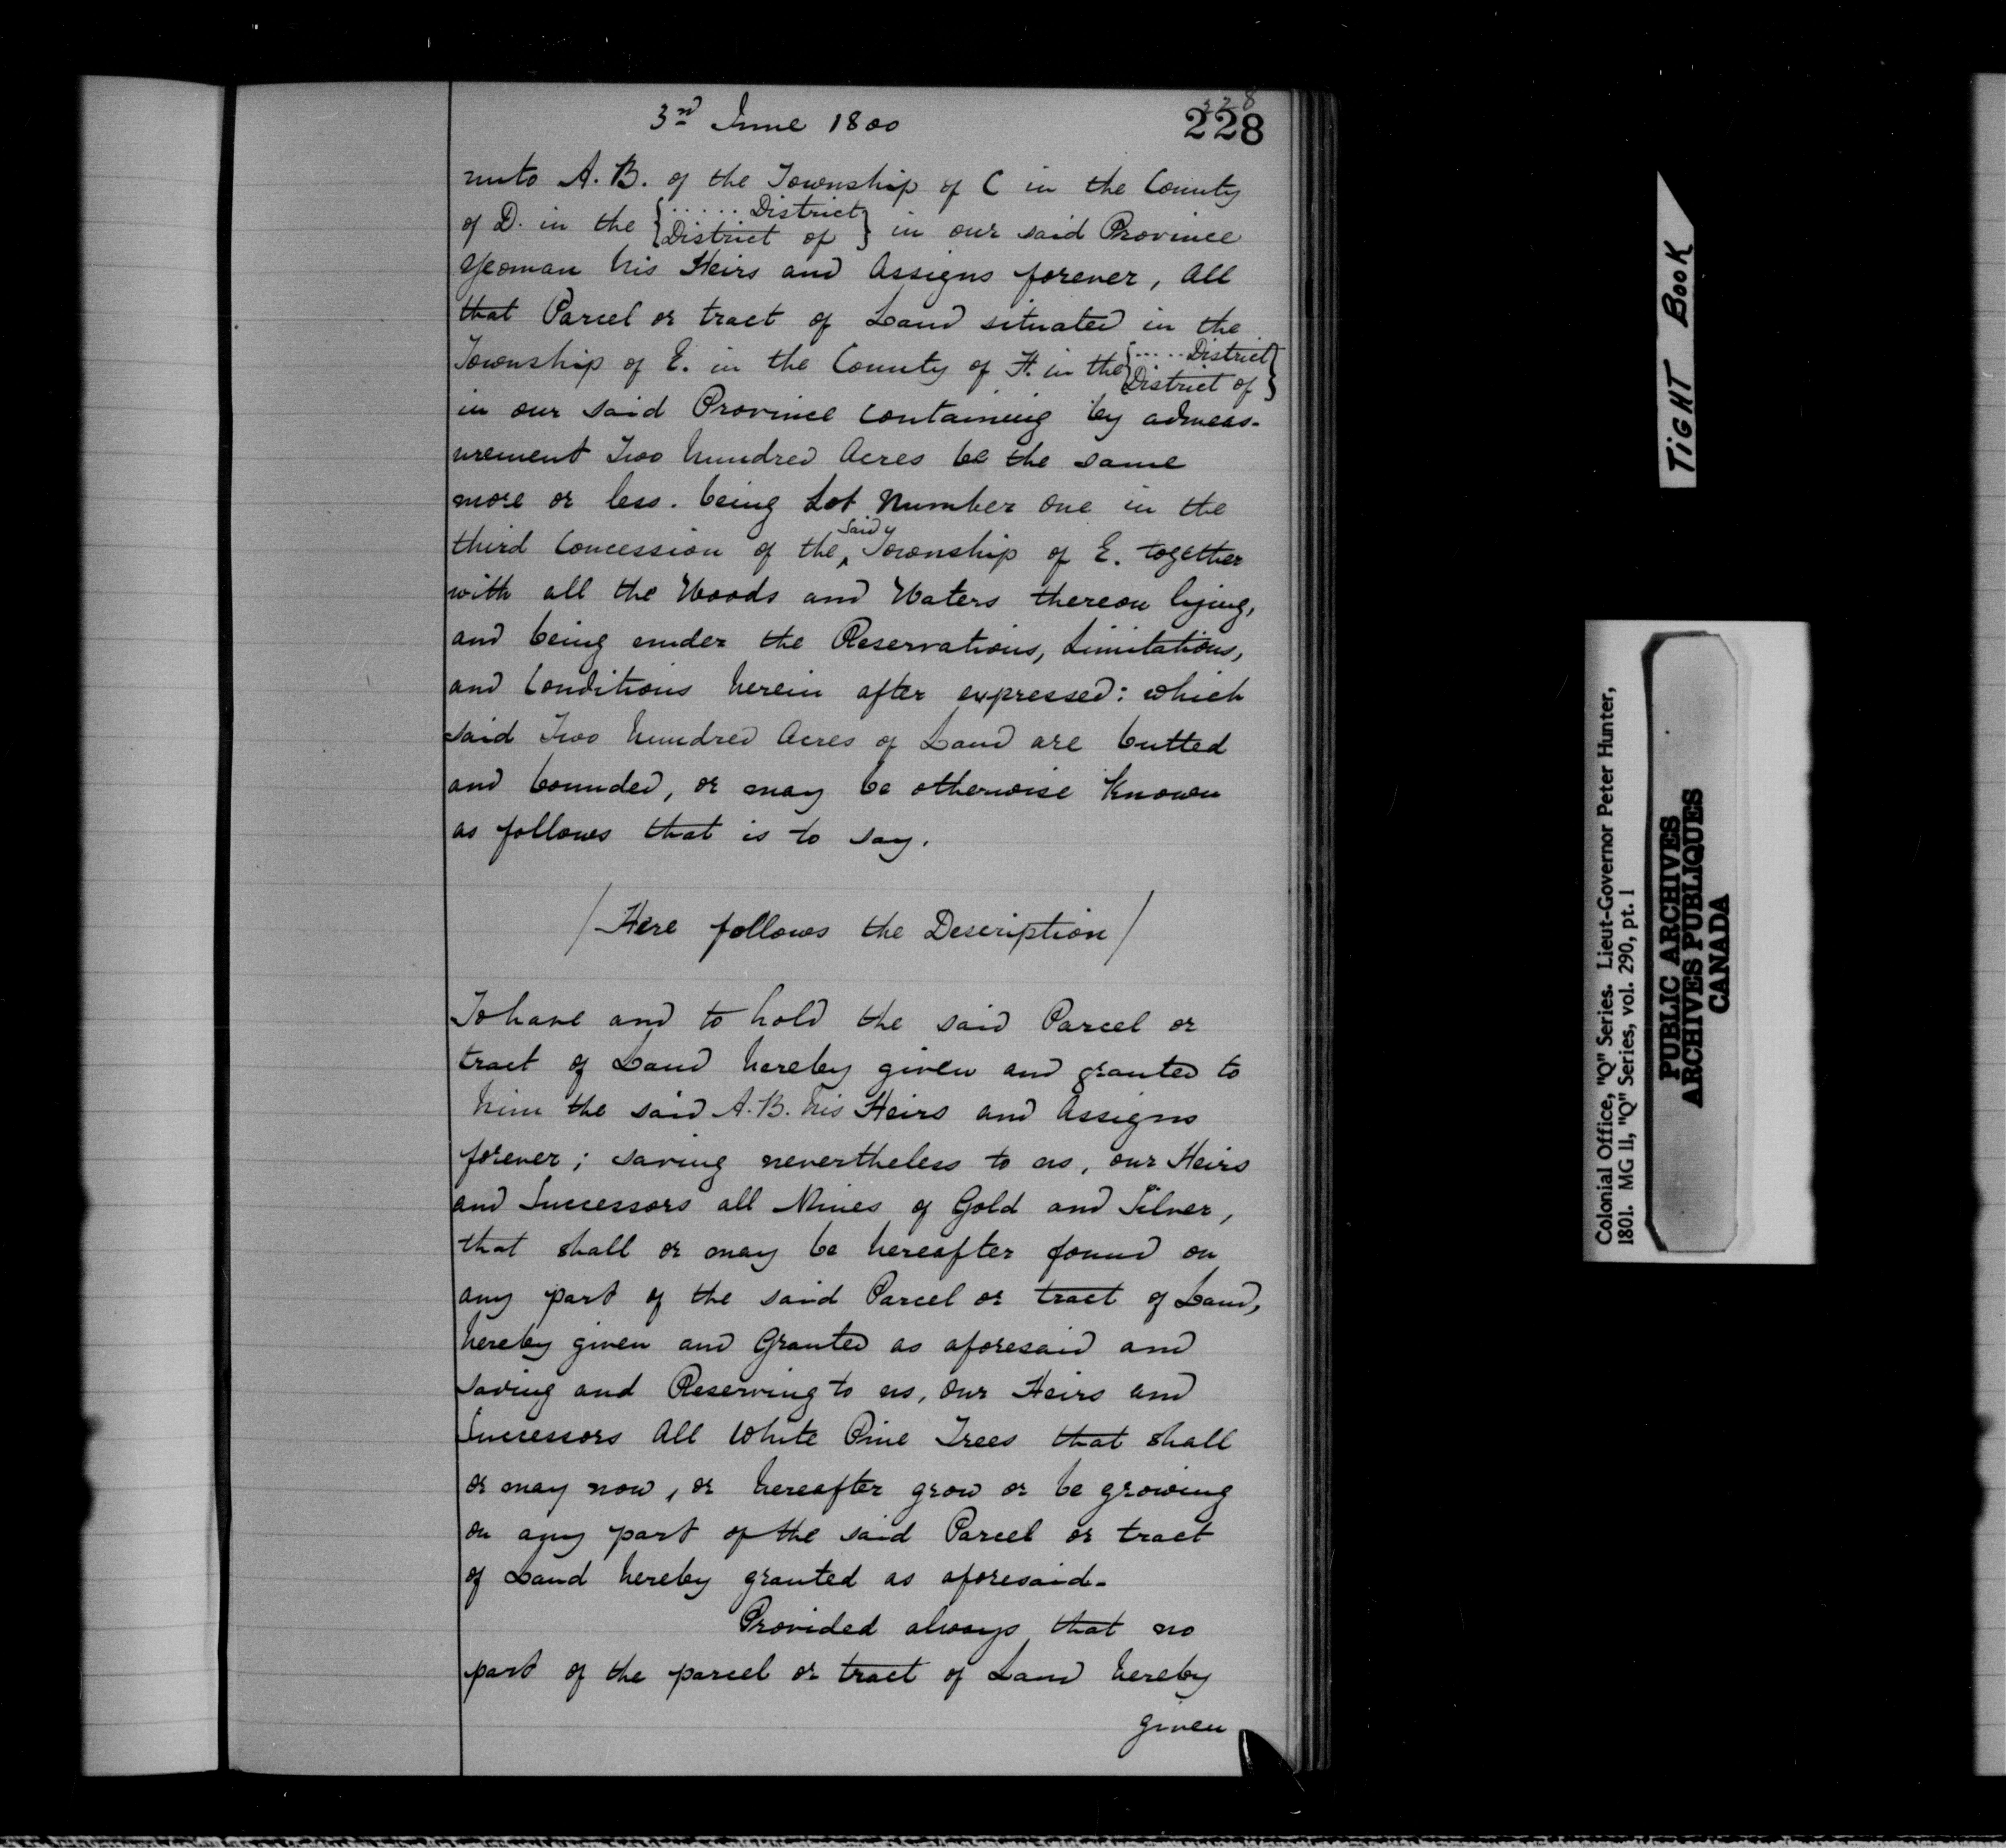 3rd June 1800
228
228
unto A. B. of the Township of C in the County
of D. in the {...... District / District of} in our said Province
Yeoman his Heirs and Assigns forever, All
that Parcel or tract of Land situated in the
Township of E. in the County of F. in the {..... District / District of}
in our said Province containing by admeas-
urement Two hundred Acres be the same
more or less. being Lot Number One in the
third Concession of the said Township of E. together
with all the Woods and Waters thereon lying,
and being under the Reservations, Limitations,
and Conditions herein after expressed: which
said Two hundred Acres of Land are butted
and bounded, or may be otherwise Known
as follows that is to say.
/Here follows the Description/
To have and to hold the said Parcel or
tract of Land hereby given and granted to
him the said A. B. his Heirs and Assigns
forever; saving nevertheless to us, our Heirs
and Successors all Mines of Gold and Silver,
that shall or may be hereafter found on
any part of the said Parcel or tract of Land,
hereby given and Granted as aforesaid and
saving and Reserving to us, our Heirs and
Successors All White Pine Trees that shall
or may now, or hereafter grow or be growing
on any part of the said Parcel or tract
of Land hereby granted as aforesaid-
Provided always that no
part of the parcel or tract of Land hereby
given
TIGHT BOOK
Colonial Office, "Q" Series. Lieut-Governor Peter Hunter,
1801. MG 11, "Q" Series, vol. 290, pt. 1
PUBLIC ARCHIVES
ARCHIVES PUBLIQUES
CANADA